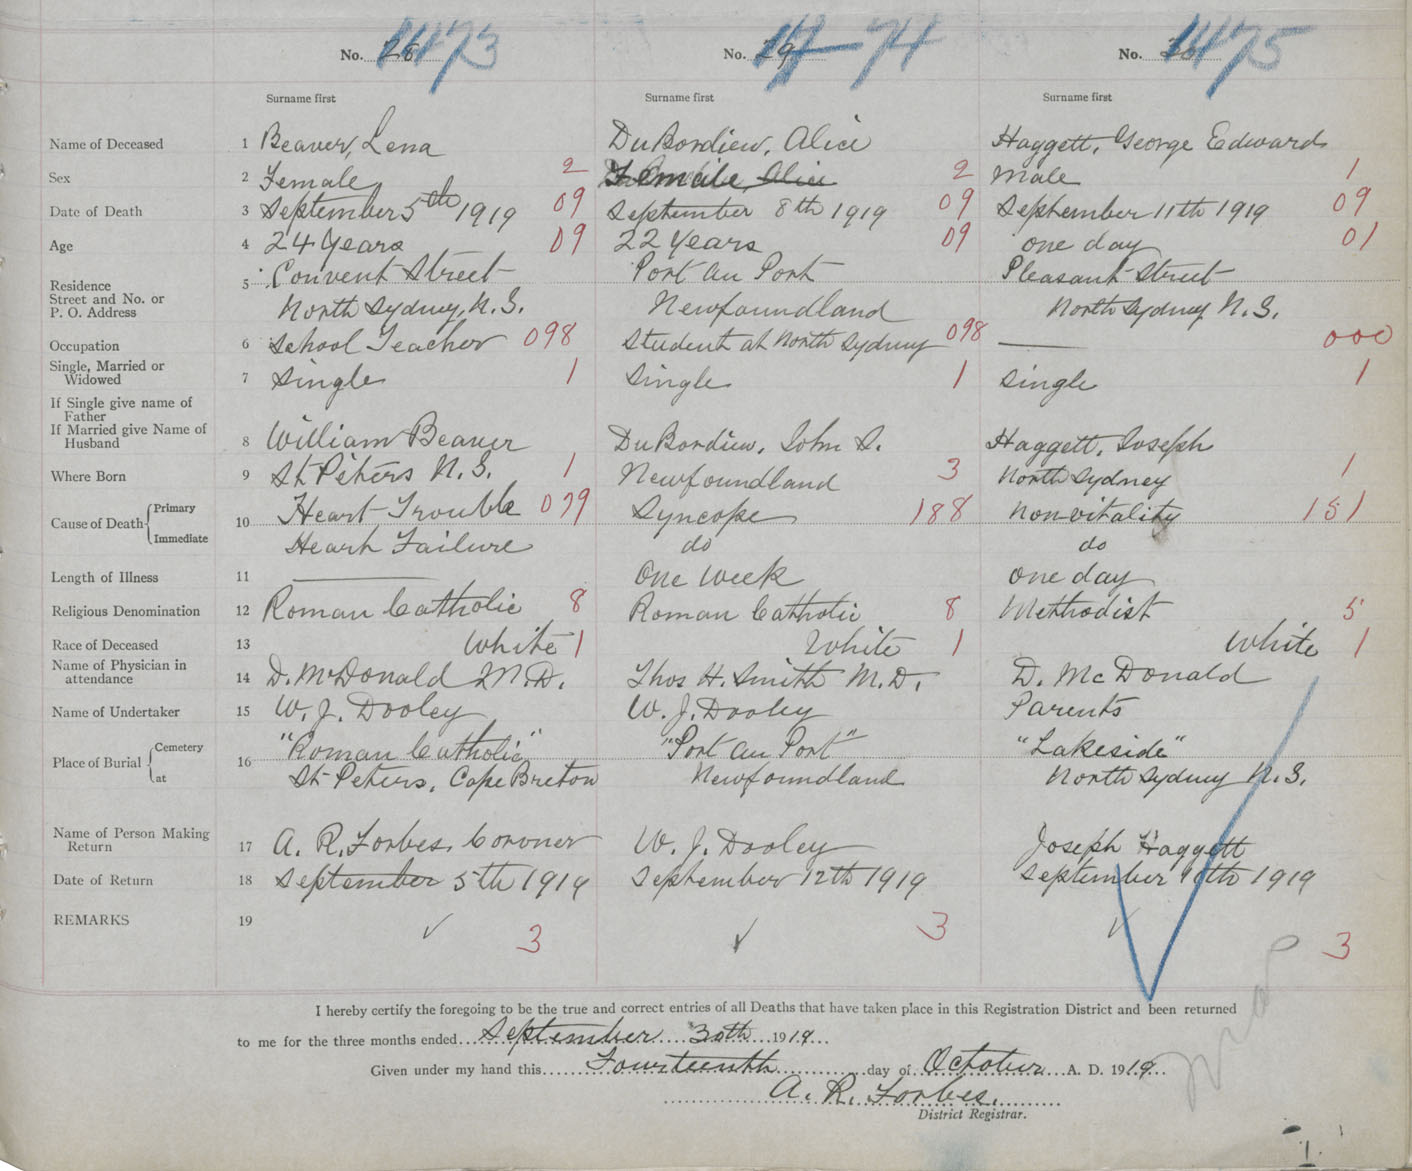 No. 28 1473 No. 29 1474 No. 30 1475
Surname first Surname first Surname first
Name of Deceased 1 Beaver, Lena DuBordieu, Alice Haggett, George Edward
Sex 2 Female 2 Female 2 Male 1
Date of Death 3 September 5th 1919 09 September 8th 1919 09 September 11th 1919 09
Age 4 24 Years 09 22 Years 09 one day 01
Residence Convent Street Port au Port Pleasant Street
Street and No. or 5
P. O. Address North Sydney, N.S. Newfoundland North Sydney N.S.
Occupation 6 School Teacher 098 Student at North Sydney 098 — 000
Single, Married or
Widowed 7 Single 1 Single 1 Single 1
If Single give name of
Father
If Married give Name of
Husband 8 William Beaver DuBordieu, John S. Haggett, Joseph
Where Born 9 St. Peters N.S. 1 Newfoundland 3 North Sydney 1
Cause of Death Primary 10 Heart Trouble 079 Syncope 188 Non-vitality 151
Immediate Heart Failure do do
Length of Illness 11 — One Week one day
Religious Denomination 12 Roman Catholic 8 Roman Catholic 8 Methodist 5
Race of Deceased 13 White 1 White 1 White 1
Name of Physician in
attendance 14 D. McDonald M.D. Thos H. Smith M.D. D. McDonald
Name of Undertaker 15 W. J. Dooley W. J. Dooley Parents
Place of Burial Cemetery 16 "Roman Catholic" "Port au Port" "Lakeside"
at St Peters, Cape Breton Newfoundland North Sydney N.S.
Name of Person Making
Return 17 A. R. Forbes, Coroner W. J. Dooley Joseph Haggett
Date of Return 18 September 5th 1919 September 12th 1919 September 1919
REMARKS 19 ✓ 3 ✓ 3 ✓ 3
I hereby certify the foregoing to be the true and correct entries of all Deaths that have taken place in this Registration District and been returned
to me for the three months ended September 30th 1919
Given under my hand this Fourteenth day of October A. D. 1919
A. R. Forbes.
District Registrar.